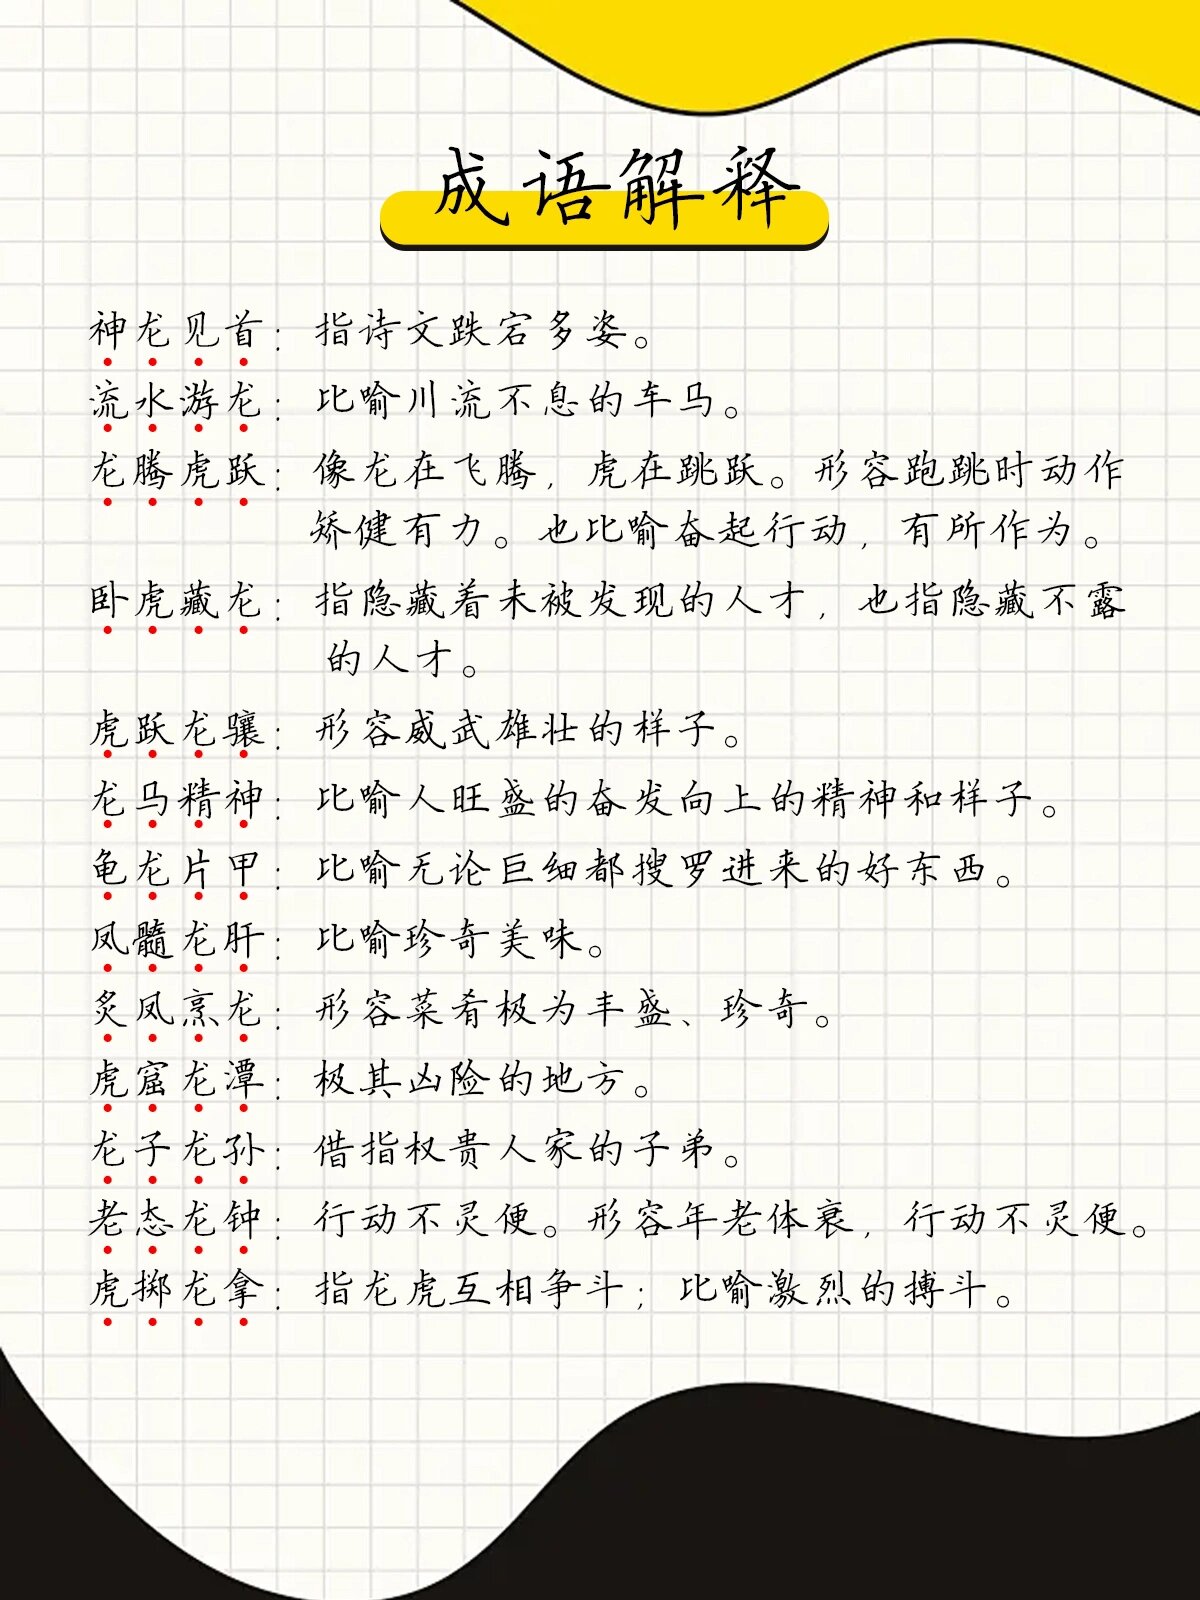 成语解释
神龙见首：指诗文跌宕多姿。
流水游龙：比喻川流不息的车马。
龙腾虎跃：像龙在飞腾，虎在跳跃。形容跑跳时动作
矫健有力。也比喻奋起行动，有所作为。
卧虎藏龙：指隐藏着未被发现的人才，也指隐藏不露
的人才。
虎跃龙骧：形容威武雄壮的样子。
龙马精神：比喻人旺盛的奋发向上的精神和样子。
龟龙片甲：比喻无论巨细都搜罗进来的好东西。
凤髓龙肝：比喻珍奇美味。
炙凤烹龙：形容菜肴极为丰盛、珍奇。
虎窟龙潭：极其凶险的地方。
龙子龙孙：借指权贵人家的子弟。
老态龙钟：行动不灵便。形容年老体衰，行动不灵便。
虎掷龙拿：指龙虎互相争斗；比喻激烈的搏斗。